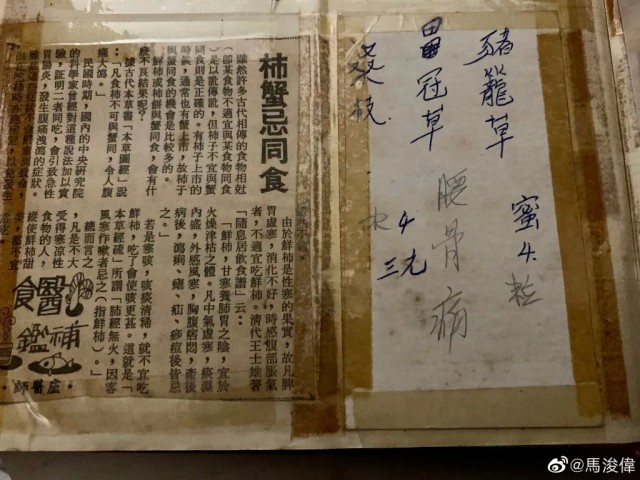 柿蟹忌同食
雖然許多古代相傳的食物相尅
（即某食物不適宜與某食物同食
）是以訛傳訛，但柿子不宜與蟹
同食則是正確的。有柿子上市的
時候，通常也有蟹上市，故柿子
與蟹同食的機會是比較多的。
鮮柿或柿餅與蟹同食，會有什
麼不良結果呢？
據古代本草書「本草圖經」說
：「凡食柿不可與蟹同，令人腹
痛大瀉。」
民國時期，國內的中央研究院
的科學家曾經對這種說法加以實
驗，證明二者同吃，會引致急性
胃腸炎，發生腹痛洩瀉的症狀。
由於鮮柿是性寒的果實，故凡脾
胃虛寒，消化不好，時感腹部脹氣
者，不適宜吃鮮柿。清代王士雄著
「隨息居飲食譜」云：
「鮮柿，甘寒養肺胃之陰，宜於
火燥津枯之體。凡中氣虛寒，痰濕
內盛，外感風寒，胸腹痞悶，產後
病後，瀉痢、瘧、疝、痧痘後皆忌
之。」
若是寒咳，咳痰清稀，就不宜吃
鮮柿，吃了會使咳更甚。這就是「
本草經疏」所謂「肺經無火，因客
風寒作嗽者忌之（指鮮柿）。」
總而言之
，凡是不大
受得寒涼性
食物的人，
縱使鮮柿甜
美，都不宜
醫補
食鑑
·盧醫師·
豬籠草
蜜4粒
冠草
腰骨痛
4
三元
@馬浚偉